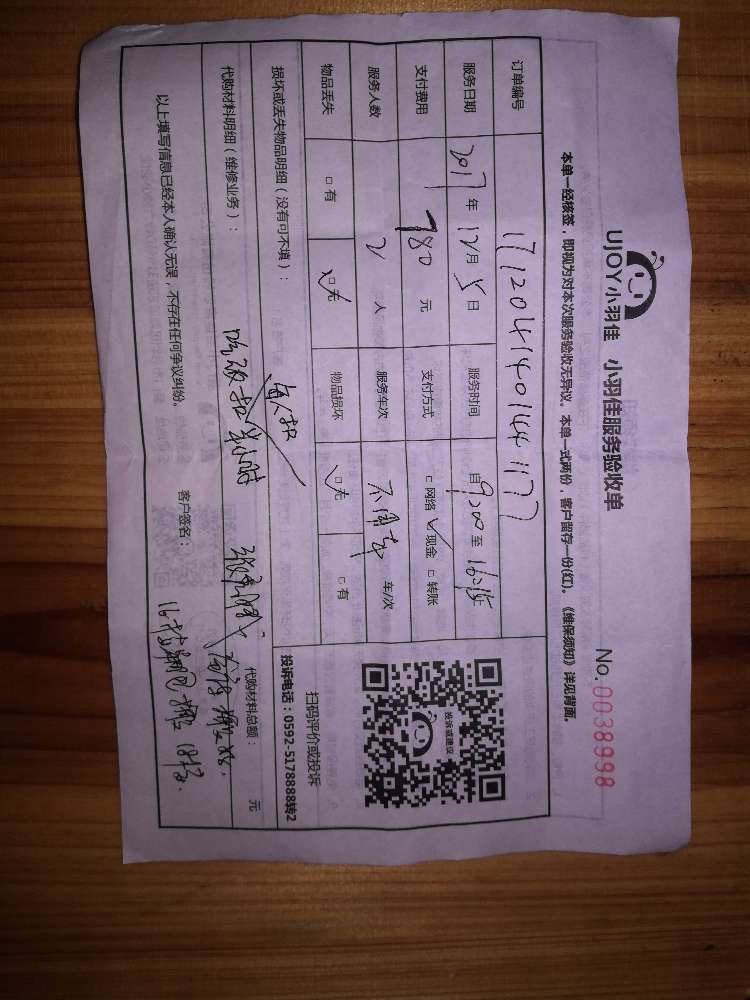 UJOY小羽佳 小羽佳服务验收单
No.0038998
本单一经核签，即视为对本次服务验收无异议。本单一式两份，客户留存一份(红)。《维保须知》详见背面。
订单编号 171204140144 1177
服务日期 2017年12月5日 服务时间 自9:00至
支付费用 780元 支付方式 □网络 ✓现金 □转账
服务人数 2人 服务车次 车/次
物品丢失 □有 ☑无 物品损坏 ☑无 □有
投诉或建议
扫码评价或投诉
投诉电话：0592-5178888转2
损坏或丢失物品明细（没有可不填）：
代购材料明细（维修业务）： 代购材料总额： 元
以上填写信息已经本人确认无误，不存在任何争议纠纷。 客户签名：